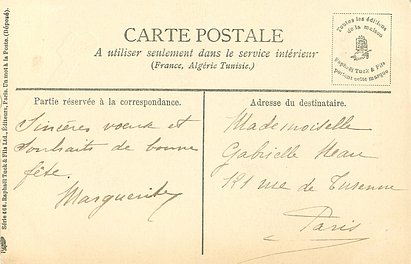 CARTE POSTALE
A utiliser seulement dans le service intérieur
(France, Algérie Tunisie.)
Toutes les éditions
de la maison
Raphaël Tuck & Fils
portent cette marque
Partie réservée à la correspondance.
Sincères voeux et
Souhaits de bonne
fête.
Marguerite
Adresse du destinataire.
Mademoiselle
Gabrielle
rue de Turenne
Paris
Série 466. Raphaël Tuck & Fils Ltd., Éditeurs, Paris. Un mot à la Poste. (Déposé).